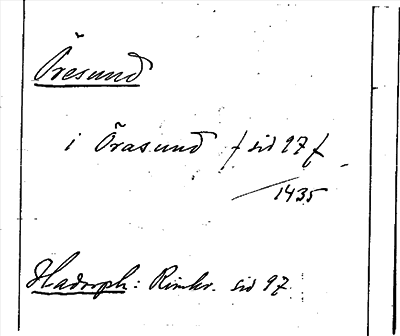 Öresund
i Örasund / sid 97 /
1435
Hadorph: Rimkr. sid 97.